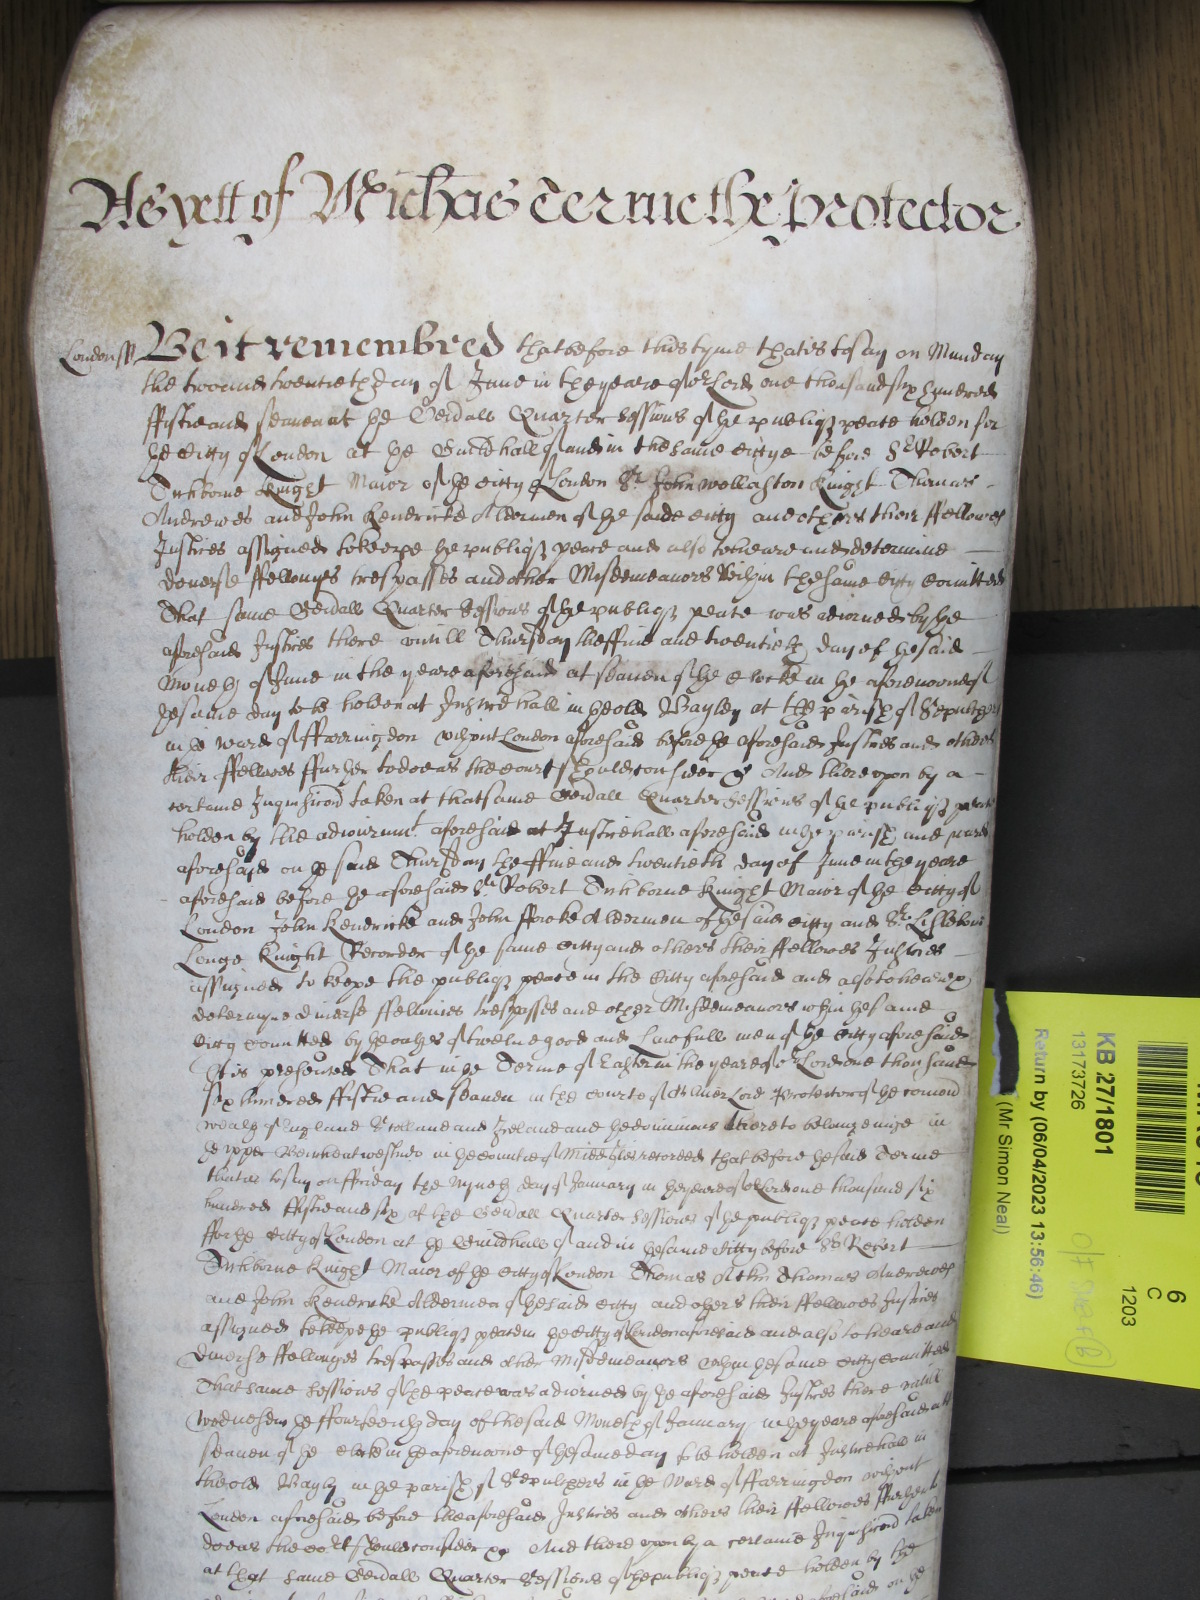 As yett of Michas Terme the Protector
London ss Be it remembred that before this tyme that is to say on Munday
the two and twentieth day of June in the yeare of or Lord one thousand six hundred
fiftie and seaven at the Genall Quarter Sessions of the publiq peace holden for
the Citty of London at the Guildhall of and in the same Cittye before Sr Robert
Tichborne Knight Maior of the Citty of London Sr John Wollaston Knight Thomas
Andrewes and John Kendricke Aldermen of the saide Citty and others their ffellowes
Justices assigned to keepe the publiq peace and also to heare and determine
diverse ffellonyes trespasses and other Misdemeanors within the same Citty comitted
That same Genall Quarter Sessions of the publiq peace was adiorned by the
aforesaid Justices there untill Thursday the ffive and twentieth day of the said
Moneth of June in the yeare aforesaid at seaven of the Clocke in the aforenoone of
the same day to be holden at Justice hall in the old Bayley at the parish of Sepulchers
in the Ward of ffarringdon without London aforesaid before the aforesaid Justices and others
their ffellowes ffurther to doe as the Court should consider &c And thereupon by a
certaine Inquisicon taken at that same Genall Quarter Sessions of the publiq peace
holden by the adiournmt aforesaid at Justice hall aforesaid in the parish and ward
aforesaid on the said Thursday the ffive and twentieth day of June in the yeare
aforesaid before the aforesaid Sr Robert Tichborne Knight Maior of the Citty of
London John Kendricke and John ffowke Aldermen of the said Citty and Sr Lislebone
Longe Knight Recorder of the same Citty and others their ffellowes Justices
assigned to keepe the publiq peace in the Citty aforesaid and also to heare &
determyne diverse ffellonies trespasses and other Misdemeanors within the same
Citty comitted by the oathes of twelve good and Lawfull men of the Citty aforesaid
It is presented That in the Terme of Easter in the yeare of or Lord one thousand
six hundred ffiftie and seaven in the Courte of Oliver Lord Protector of the Comon
wealth of England Scotland and Ireland and the dominions thereto belonginge in
the upper Bench at Westmr in the Countie of Midd it is recorded that before the said Terme
that is to say on ffriday the Nyneth day of January in the yeare of or Lord one thousand six
hundred ffiftie and six at the Genall Quarter Sessions of the publiq peace holden
ffor the Citty of London at the Guildhall of and in the same Citty before Sr Robert
Tichborne Knight Maior of the Citty of London Thomas Atkin Thomas Andrewes
and John Kendricke Aldermen of the said Citty and others their ffellowes Justices
assigned to keepe the publiq peace in the Citty of London aforesaid and also to heare and
diverse ffellonyes trespasses and other Misdemeanors within the same Citty comitted
That same Sessions of the peace was adiorned by the aforesaid Justices there untill
Wednesday the ffourteenth day of the said Moneth of January in the yeare aforesaid att
seaven of the Clocke in the aforenoone of the same day to be holden at Justice hall in
the old Bayly in the parish of Sepulchers in the Ward of ffarringdon without
London aforesaid before the aforesaid Justices and others their ffellowes ffurther to
doe as the Court should consider &c And thereupon by a certaine Inquisicon taken
at that same Genall Quarter Sessions of the publiq peace holden by the
aforesaid on the
6
C
1203
KB 27/1801
13173726
Return by (06/04/2023 13:56:46)
(Mr Simon Neal)